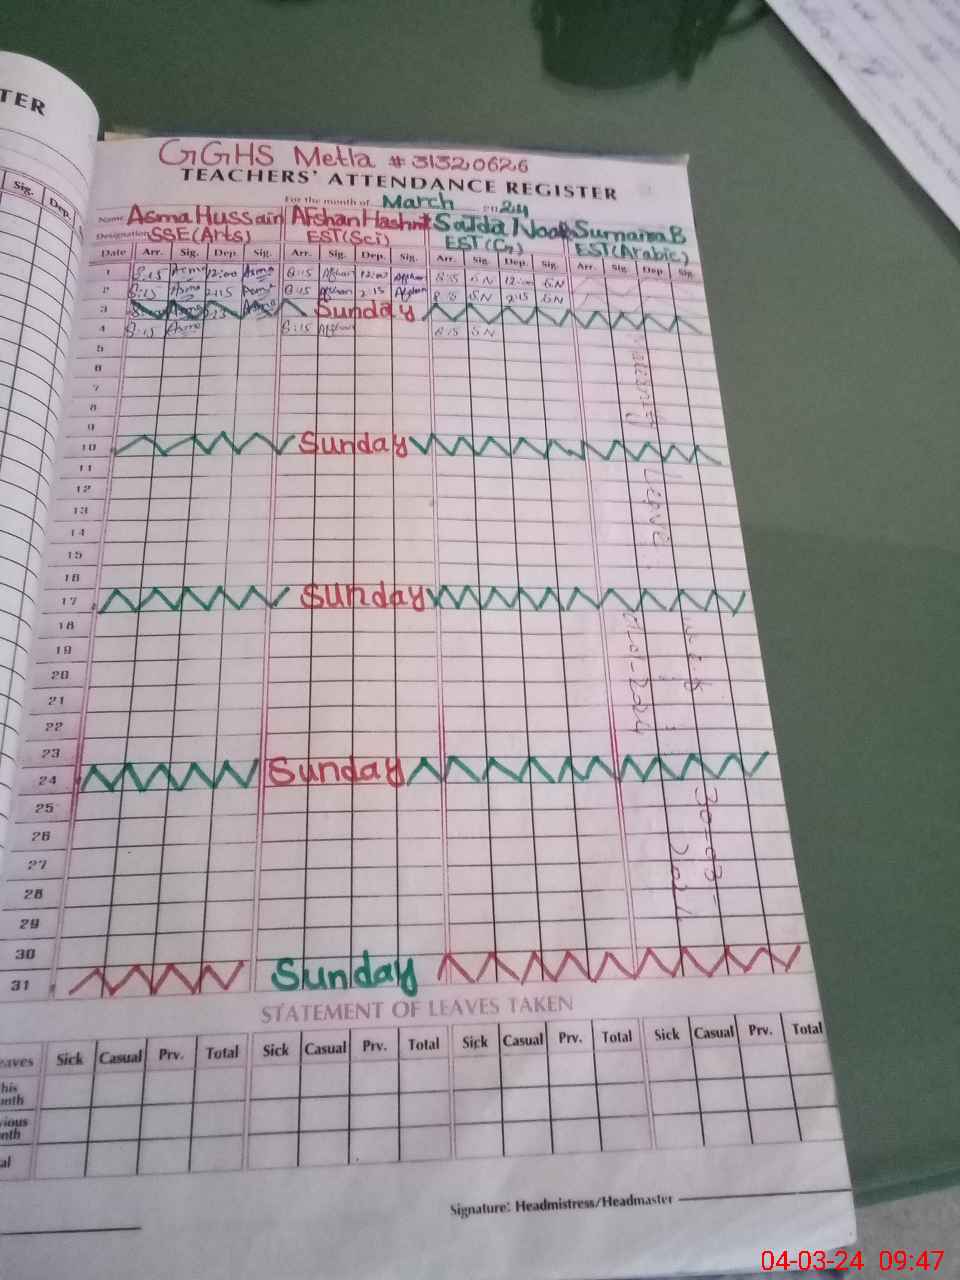 TER
Sig.
Dep.
GGHS Metla # 31320626
TEACHERS' ATTENDANCE REGISTER
For the month of March 2024
Name Asma Hussain Afshan Hashmi Sajda Noor Sumaira B
Designation SSE(Arts) EST(Sci) EST(Arabic)
Date Arr. Sig. Dep. Sig. Arr. Sig. Dep. Sig. Arr. Sig. Dep. Sig. Arr. Sig. Dep. Sig.
1 8:15 Asma 12:00 Asma 8:15 Afshan 12:00 Afshan 8:15 SN 12:00 SN
2 8:15 Asma 2:15 Asma 8:15 Afshan 2:15 Afshan 8:15 SN 2:15 SN
3 Sunday
4 8:15 Asma 8:15 Afshan 8:15 SN
5
6
7
8
9
10 Sunday
11
12
13
14
15
16
17 Sunday
18
19
20
21
22
23
24 Sunday
25
26
27
28
29
30
31 Sunday
Maternity Leave
30-03-2024
STATEMENT OF LEAVES TAKEN
eaves Sick Casual Prv. Total Sick Casual Prv. Total Sick Casual Prv. Total Sick Casual Prv. Total
his
nth
vious
nth
al
Signature: Headmistress/Headmaster
04-03-24 09:47